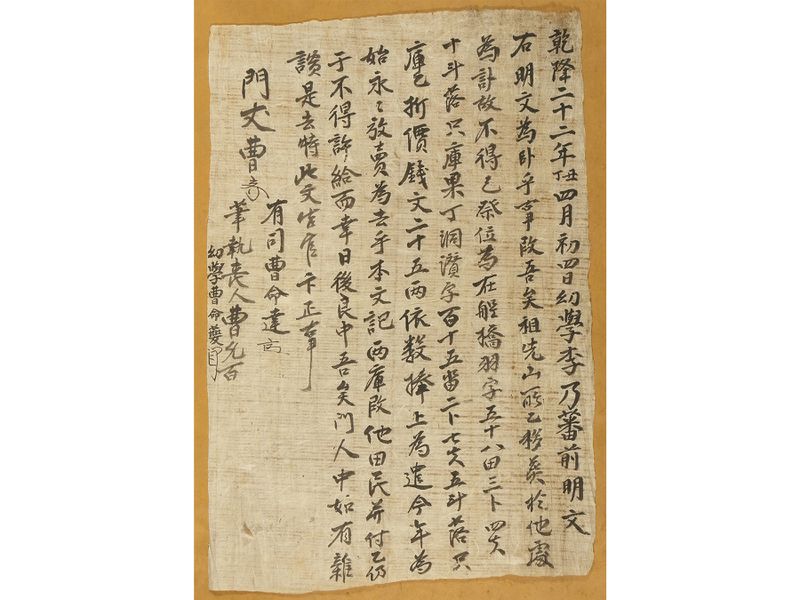 乾隆二十二年丁丑四月初四日幼學李乃蕃前明文
右明文為臥乎事段吾矣祖先山所乙移葬於他處
為計故不得已祭位為在船橋羽字五十八田三卜四夨
十斗落只庫果丁洞讃字百十五畓二卜七夨五斗落只
庫乙折價錢文二十五兩依數捧上為遣今年為
始永〻放賣為去乎本文記兩庫段他田民并付乙仍
于不得許給而幸日後良中吾矣門人中如有雜
談是去等持此文告官卞正事
門丈曹
有司曹命達
筆執喪人曹允百
幼學曹命夔